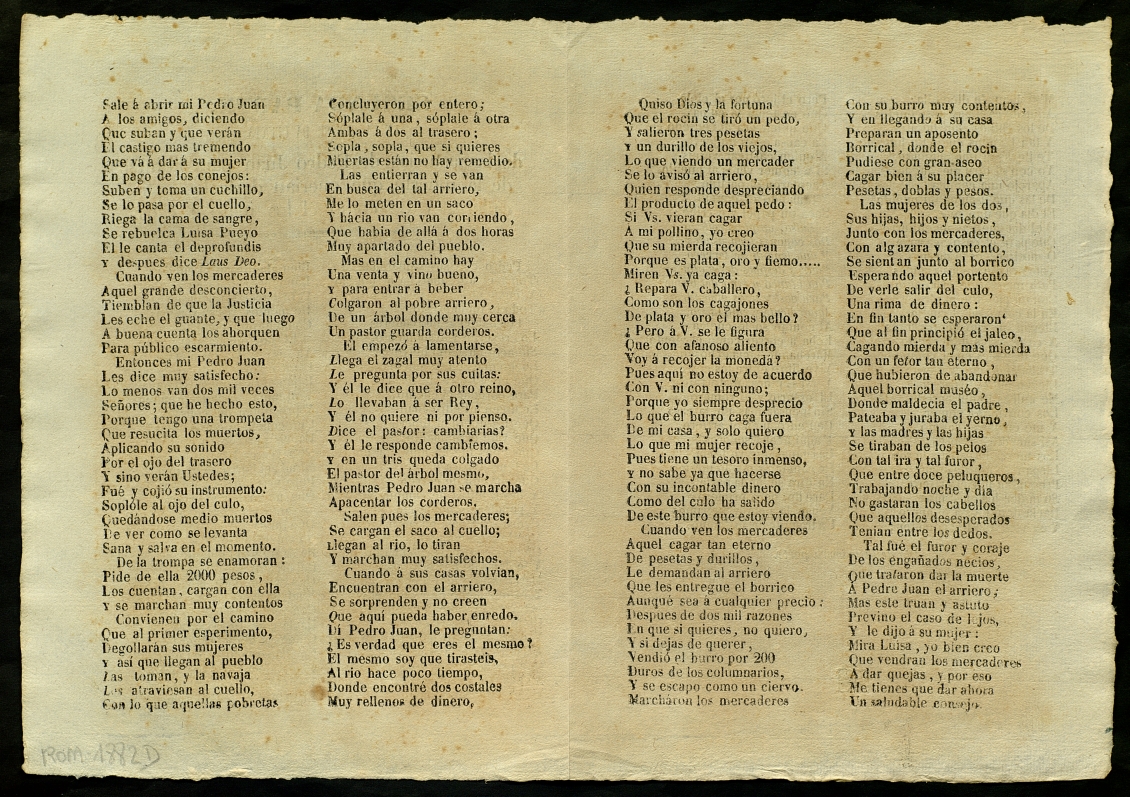 Sale á abrir mi Pedro Juan
A los amigos, diciendo
Que suban y que verán
El castigo mas tremendo
Que vá á dar á su mujer
En pago de los conejos:
Suben y toma un cuchillo,
Se lo pasa por el cuello,
Riega la cama de sangre,
Se rebuelca Luisa Pueyo
El le canta el deprofundis
Y despues dice Laus Deo.
Cuando ven los mercaderes
Aquel grande desconcierto,
Tiemblan de que la Justicia
Les eche el guante, y que luego
A buena cuenta los ahorquen
Para público escarmiento.
Entonces mi Pedro Juan
Les dice muy satisfecho:
Lo menos van dos mil veces
Señores; que he hecho esto,
Porque tengo una trompeta
Que resucita los muertos,
Aplicando su sonido
Por el ojo del trasero
Y sino verán Ustedes;
Fué y cojió su instrumento:
Soplóle al ojo del culo,
Quedándose medio muertos
De ver como se levanta
Sana y salva en el momento.
De la trompa se enamoran:
Pide de ella 2000 pesos,
Los cuentan, cargan con ella
Y se marchan muy contentos
Convienen por el camino
Que al primer esperimento,
Degollarán sus mujeres
Y así que llegan al pueblo
Las toman, y la navaja
Les atraviesan al cuello,
Con lo que aquellas pobretas
Concluyeron por entero;
Sóplale á una, sóplale á otra
Ambas á dos al trasero;
Sopla, sopla, que si quieres
Muertas están no hay remedio.
Las entierran y se van
En busca del tal arriero,
Me lo meten en un saco
Y hácia un rio van corriendo,
Que habia de allá á dos horas
Muy apartado del pueblo.
Mas en el camino hay
Una venta y vino bueno,
Y para entrar á beber
Colgaron al pobre arriero,
De un árbol donde muy cerca
Un pastor guarda corderos.
El empezó á lamentarse,
Llega el zagal muy atento
Le pregunta por sus cuitas:
Y él le dice que á otro reino,
Lo llevaban á ser Rey,
Y él no quiere ni por pienso.
Dice el pastor: cambiarias?
Y él le responde cambiemos.
Y en un tris queda colgado
El pastor del árbol mesmo,
Mientras Pedro Juan se marcha
Apacentar los corderos.
Salen pues los mercaderes;
Se cargan el saco al cuello;
Llegan al rio, lo tiran
Y marchan muy satisfechos.
Cuando á sus casas volvian,
Encuentran con el arriero,
Se sorprenden y no creen
Que aqui pueda haber enredo.
Di Pedro Juan, le preguntan:
¿Es verdad que eres el mesmo?
El mesmo soy que tirasteis,
Al rio hace poco tiempo,
Donde encontré dos costales
Muy rellenos de dinero,
Quiso Dios y la fortuna
Que el rocin se tiró un pedo,
Y salieron tres pesetas
Y un durillo de los viejos,
Lo que viendo un mercader
Se lo avisó al arriero,
Quien responde despreciando
El producto de aquel pedo:
Si Vs. vieran cagar
A mi pollino, yo creo
Que su mierda recojieran
Porque es plata, oro y fiemo.....
Miren Vs. ya caga:
¿Repara V. caballero,
Como son los cagajones
De plata y oro el mas bello?
¿Pero á V. se le figura
Que con afanoso aliento
Voy á recojer la moneda?
Pues aqui no estoy de acuerdo
Con V. ni con ninguno;
Porque yo siempre desprecio
Lo que el burro caga fuera
De mi casa, y solo quiero
Lo que mi mujer recoje,
Pues tiene un tesoro inmenso,
Y no sabe ya que hacerse
Con su incontable dinero
Como del culo ha salido
De este burro que estoy viendo.
Cuando ven los mercaderes
Aquel cagar tan eterno
De pesetas y durillos,
Le demandan al arriero
Que les entregue el borrico
Aunque sea á cualquier precio:
Despues de dos mil razones
En que si quieres, no quiero,
Y si dejas de querer,
Vendió el burro por 200
Duros de los columnarios,
Y se escapo como un ciervo.
Marcharon los mercaderes
Con su burro muy contentos,
Y en llegando á su casa
Preparan un aposento
Borrical, donde el rocin
Pudiese con gran aseo
Cagar bien á su placer
Pesetas, doblas y pesos.
Las mujeres de los dos,
Sus hijas, hijos y nietos,
Junto con los mercaderes,
Con algazara y contento,
Se sientan junto al borrico
Esperando aquel portento
De verle salir del culo,
Una rima de dinero:
En fin tanto se esperaron
Que al fin principió el jaleo,
Cagando mierda y mas mierda
Con un fetor tan eterno,
Que hubieron de abandonar
Aquel borrical muséo,
Donde maldecia el padre,
Pateaba y juraba el yerno,
Y las madres y las hijas
Se tiraban de los pelos
Con tal ira y tal furor,
Que entre doce peluqueros,
Trabajando noche y dia
No gastaran los cabellos
Que aquellos desesperados
Tenian entre los dedos.
Tal fué el furor y coraje
De los engañados necios,
Que trataron dar la muerte
A Pedre Juan el arriero;
Mas este truan y astuto
Previno el caso de lejos,
Y le dijo á su mujer:
Mira Luisa, yo bien creo
Que vendran los mercaderes
A dar quejas, y por eso
Me tienes que dar ahora
Un saludable consejo.
ROM 1882 D